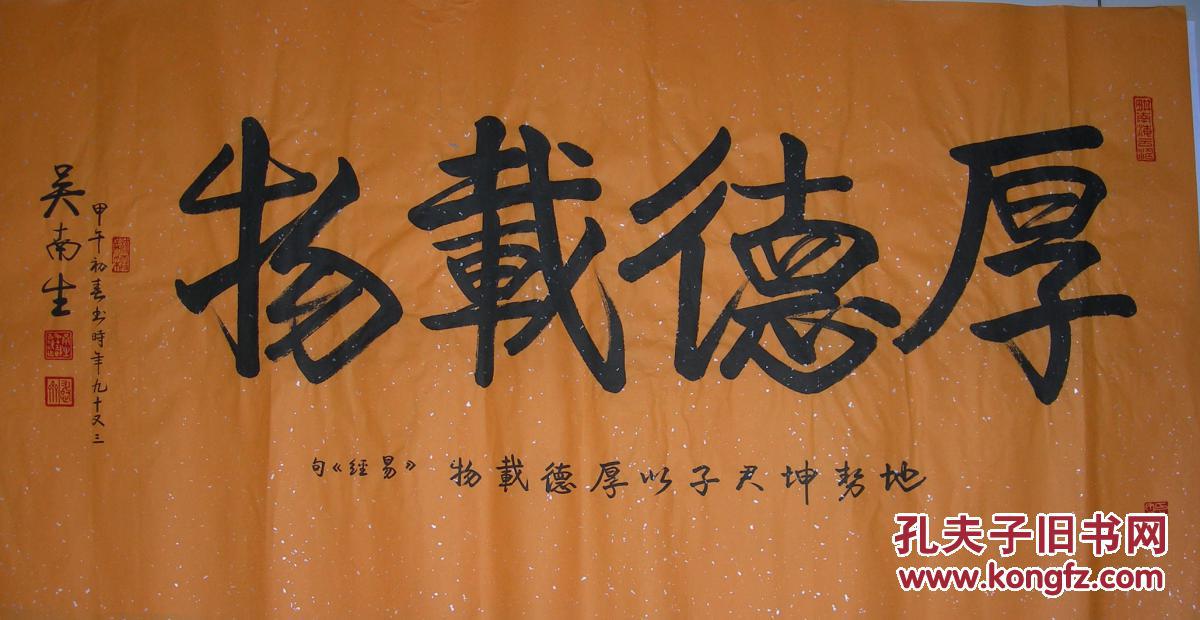 厚德載物
地勢坤君子以厚德載物《易經》句
甲午初春書時年九十又三
吴南生
孔夫子旧书网
www.kongfz.com